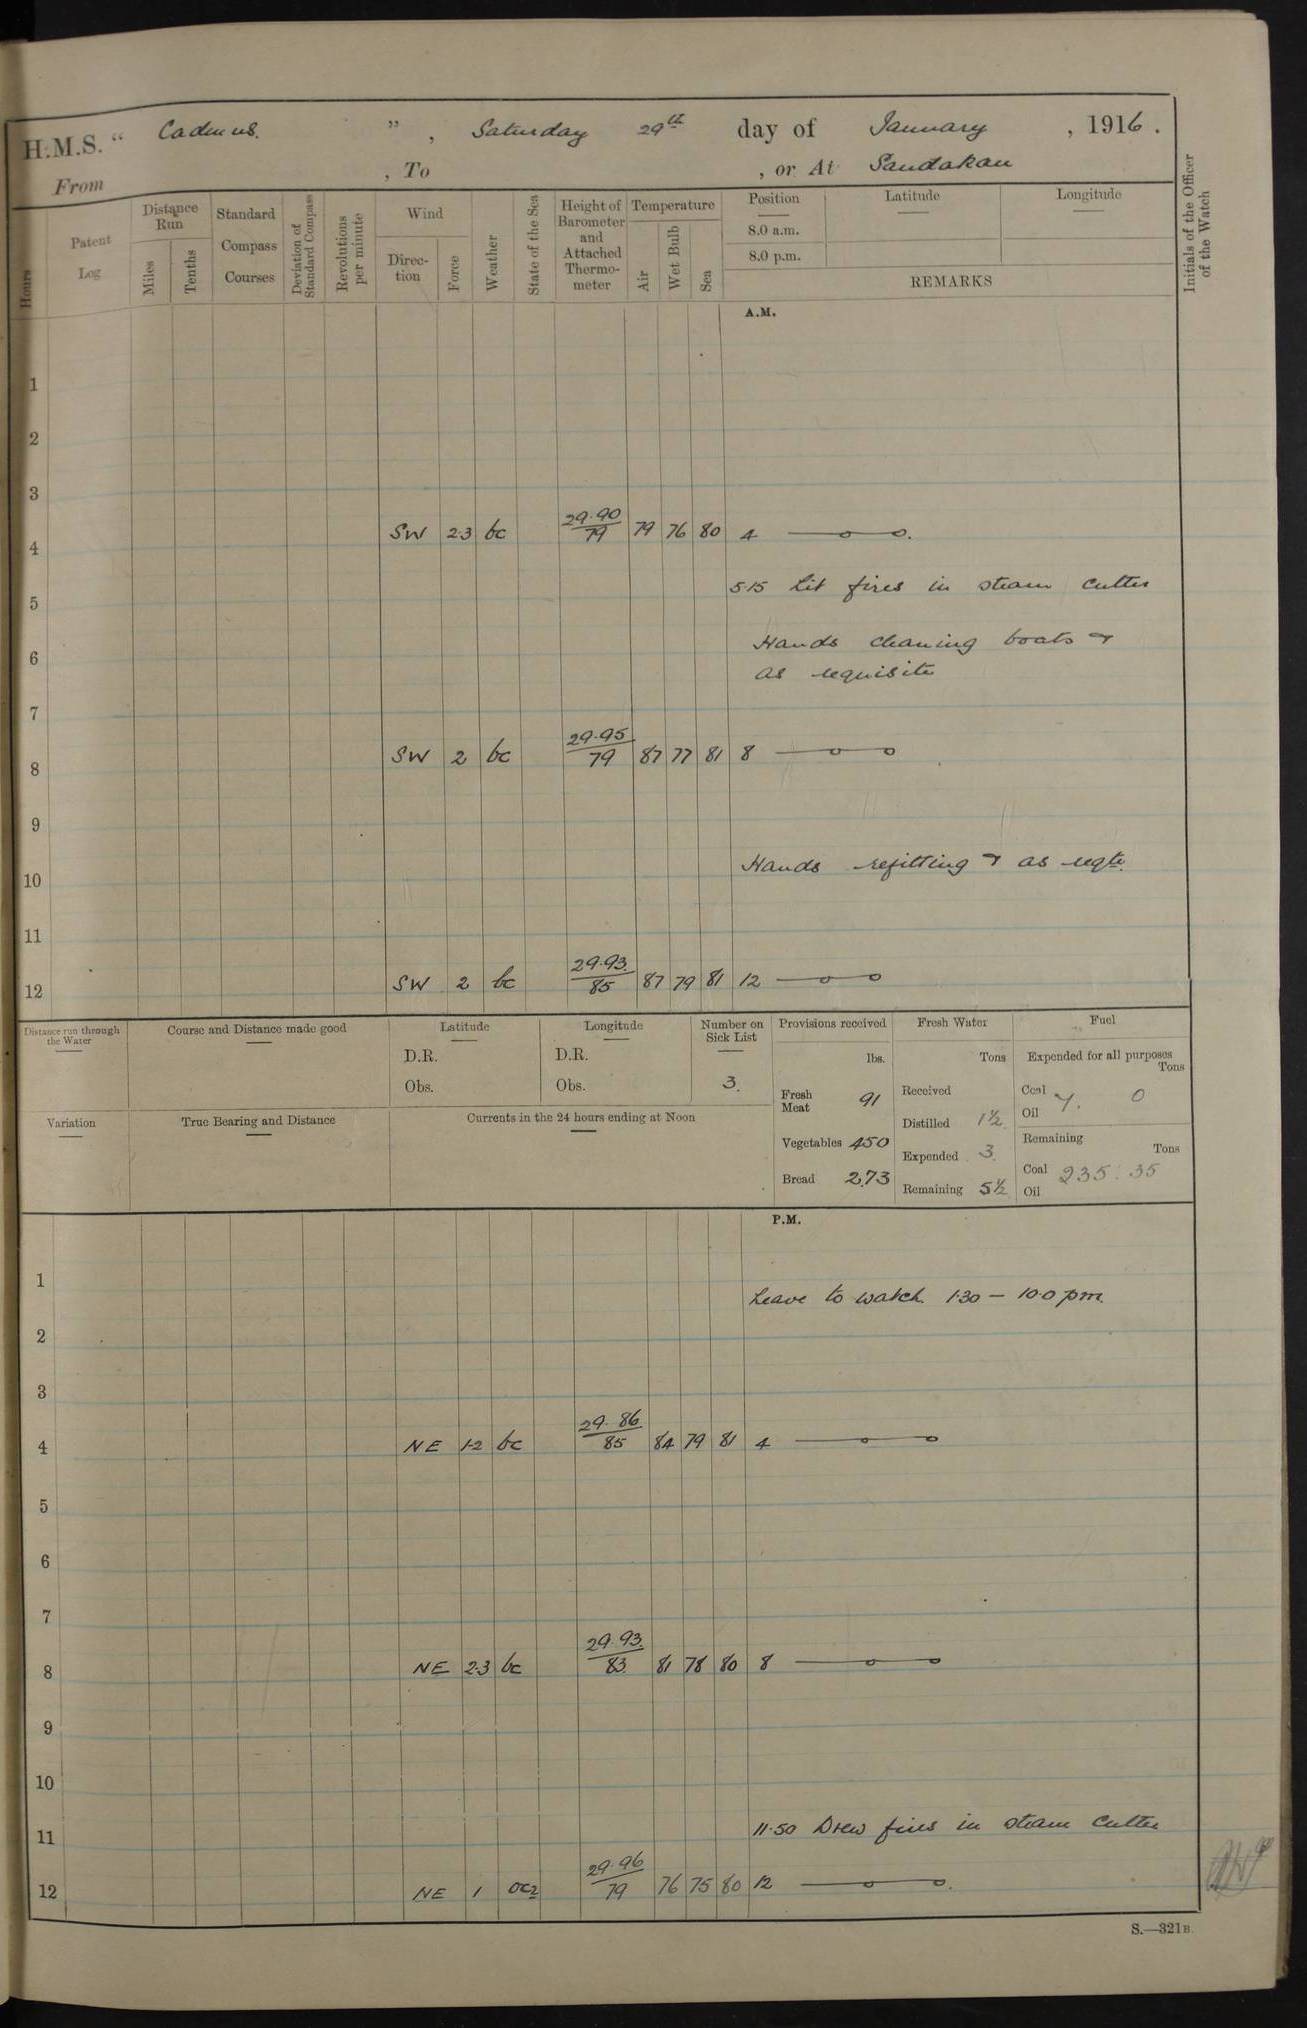 H.M.S. “ Cadmus. ” , Saturday 29th day of January , 1916 .
From , To , or At Sandakan
Hours
Patent Log
Distance Run
Miles
Tenths
Standard Compass Courses
Deviation of Standard Compass
Revolutions per minute
Wind
Direction
Force
Weather
State of the Sea
Height of Barometer and Attached Thermometer
Temperature
Air
Wet Bulb
Sea
Position
8.0 a.m.
8.0 p.m.
Latitude
Longitude
REMARKS
Initials of the Officer of the Watch
A.M.
1
2
3
4 SW 2·3 bc 29·90/79 79 76 80 4
5 5·15 Lit fires in steam cutter
6 Hands cleaning boats &
as requisite
7
8 SW 2 bc 29·95/79 87 77 81 8
9
10 Hands refitting & as reqte.
11
12 SW 2 bc 29·93/85 87 79 81 12
Distance run through the Water
Course and Distance made good
Latitude
D.R.
Obs.
Longitude
D.R.
Obs.
Number on Sick List
3.
Variation
True Bearing and Distance
Currents in the 24 hours ending at Noon
Provisions received
lbs.
Fresh Meat 91
Vegetables 450
Bread 273
Fresh Water
Tons
Received
Distilled 1½
Expended 3
Remaining 5½
Fuel
Expended for all purposes
Tons
Coal 7. 0
Oil
Remaining
Tons
Coal 235 : 35
Oil
P.M.
1 Leave to watch 1·30 – 10·0 pm.
2
3
4 NE 1-2 bc 29.86/85 84 79 81 4
5
6
7
8 NE 2·3 bc 29.93/83 81 78 80 8
9
10
11 11·50 Drew fires in steam cutter
12 NE 1 29.96/79 76 75 80 12
S.—321B.